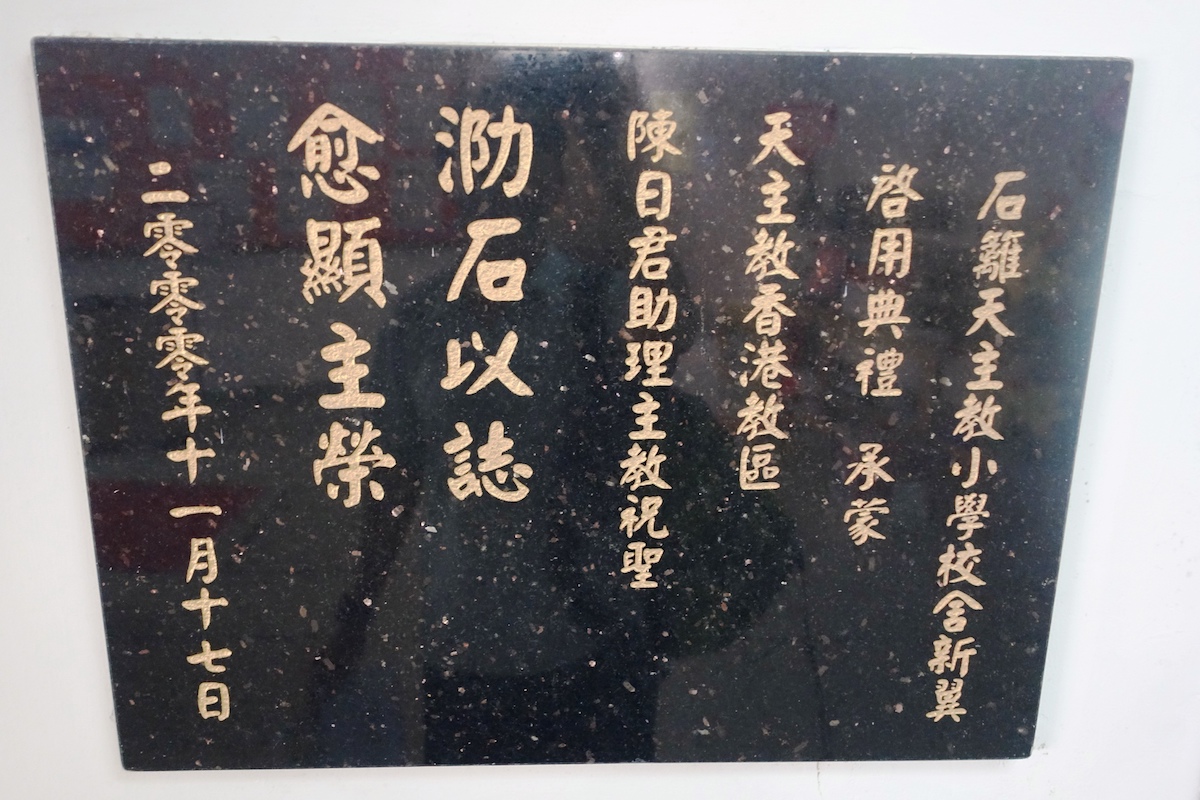 石籬天主教小學校舍新翼
啓用典禮　承蒙
天主教香港教區
陳日君助理主教祝聖
泐石以誌
愈顯主榮
二零零零年十一月十七日